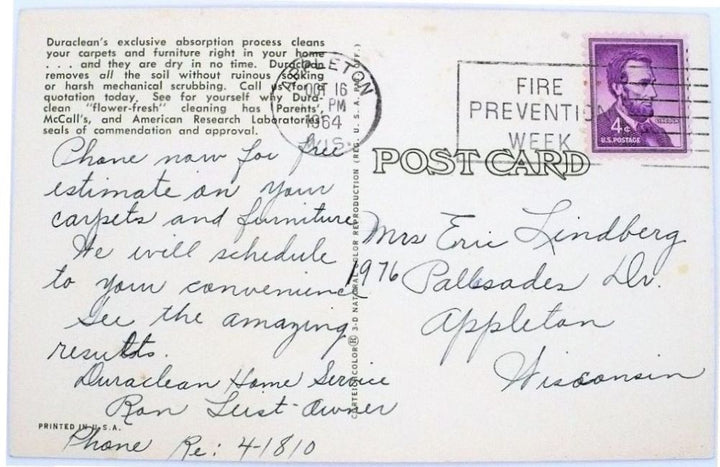 Duraclean's exclusive absorption process cleans
your carpets and furniture right in your home
. . . and they are dry in no time. Duraclean
removes all the soil without ruinous soaking
or harsh mechanical scrubbing. Call us for a
quotation today. See for yourself why Dura-
clean "flower-fresh" cleaning has Parents',
McCall's, and American Research Laboratories
seals of commendation and approval.
APPLETON
OCT 16
PM
1964
WIS.
FIRE
PREVENTION
WEEK
LINCOLN
4¢
U.S. POSTAGE
POST CARD
Phone now for free
estimate on your
carpets and furniture
We will schedule
to your convenience
See the amazing
results.
Duraclean Home Service
Ron Leist-Owner
Phone Re: 4-1810
PRINTED IN U.S.A.
3-D NATURAL COLOR REPRODUCTION (REG. U. S. A. PAT. OFF.)
Mrs Eric Lindberg
1976 Palisades Dr.
Appleton
Wisconsin